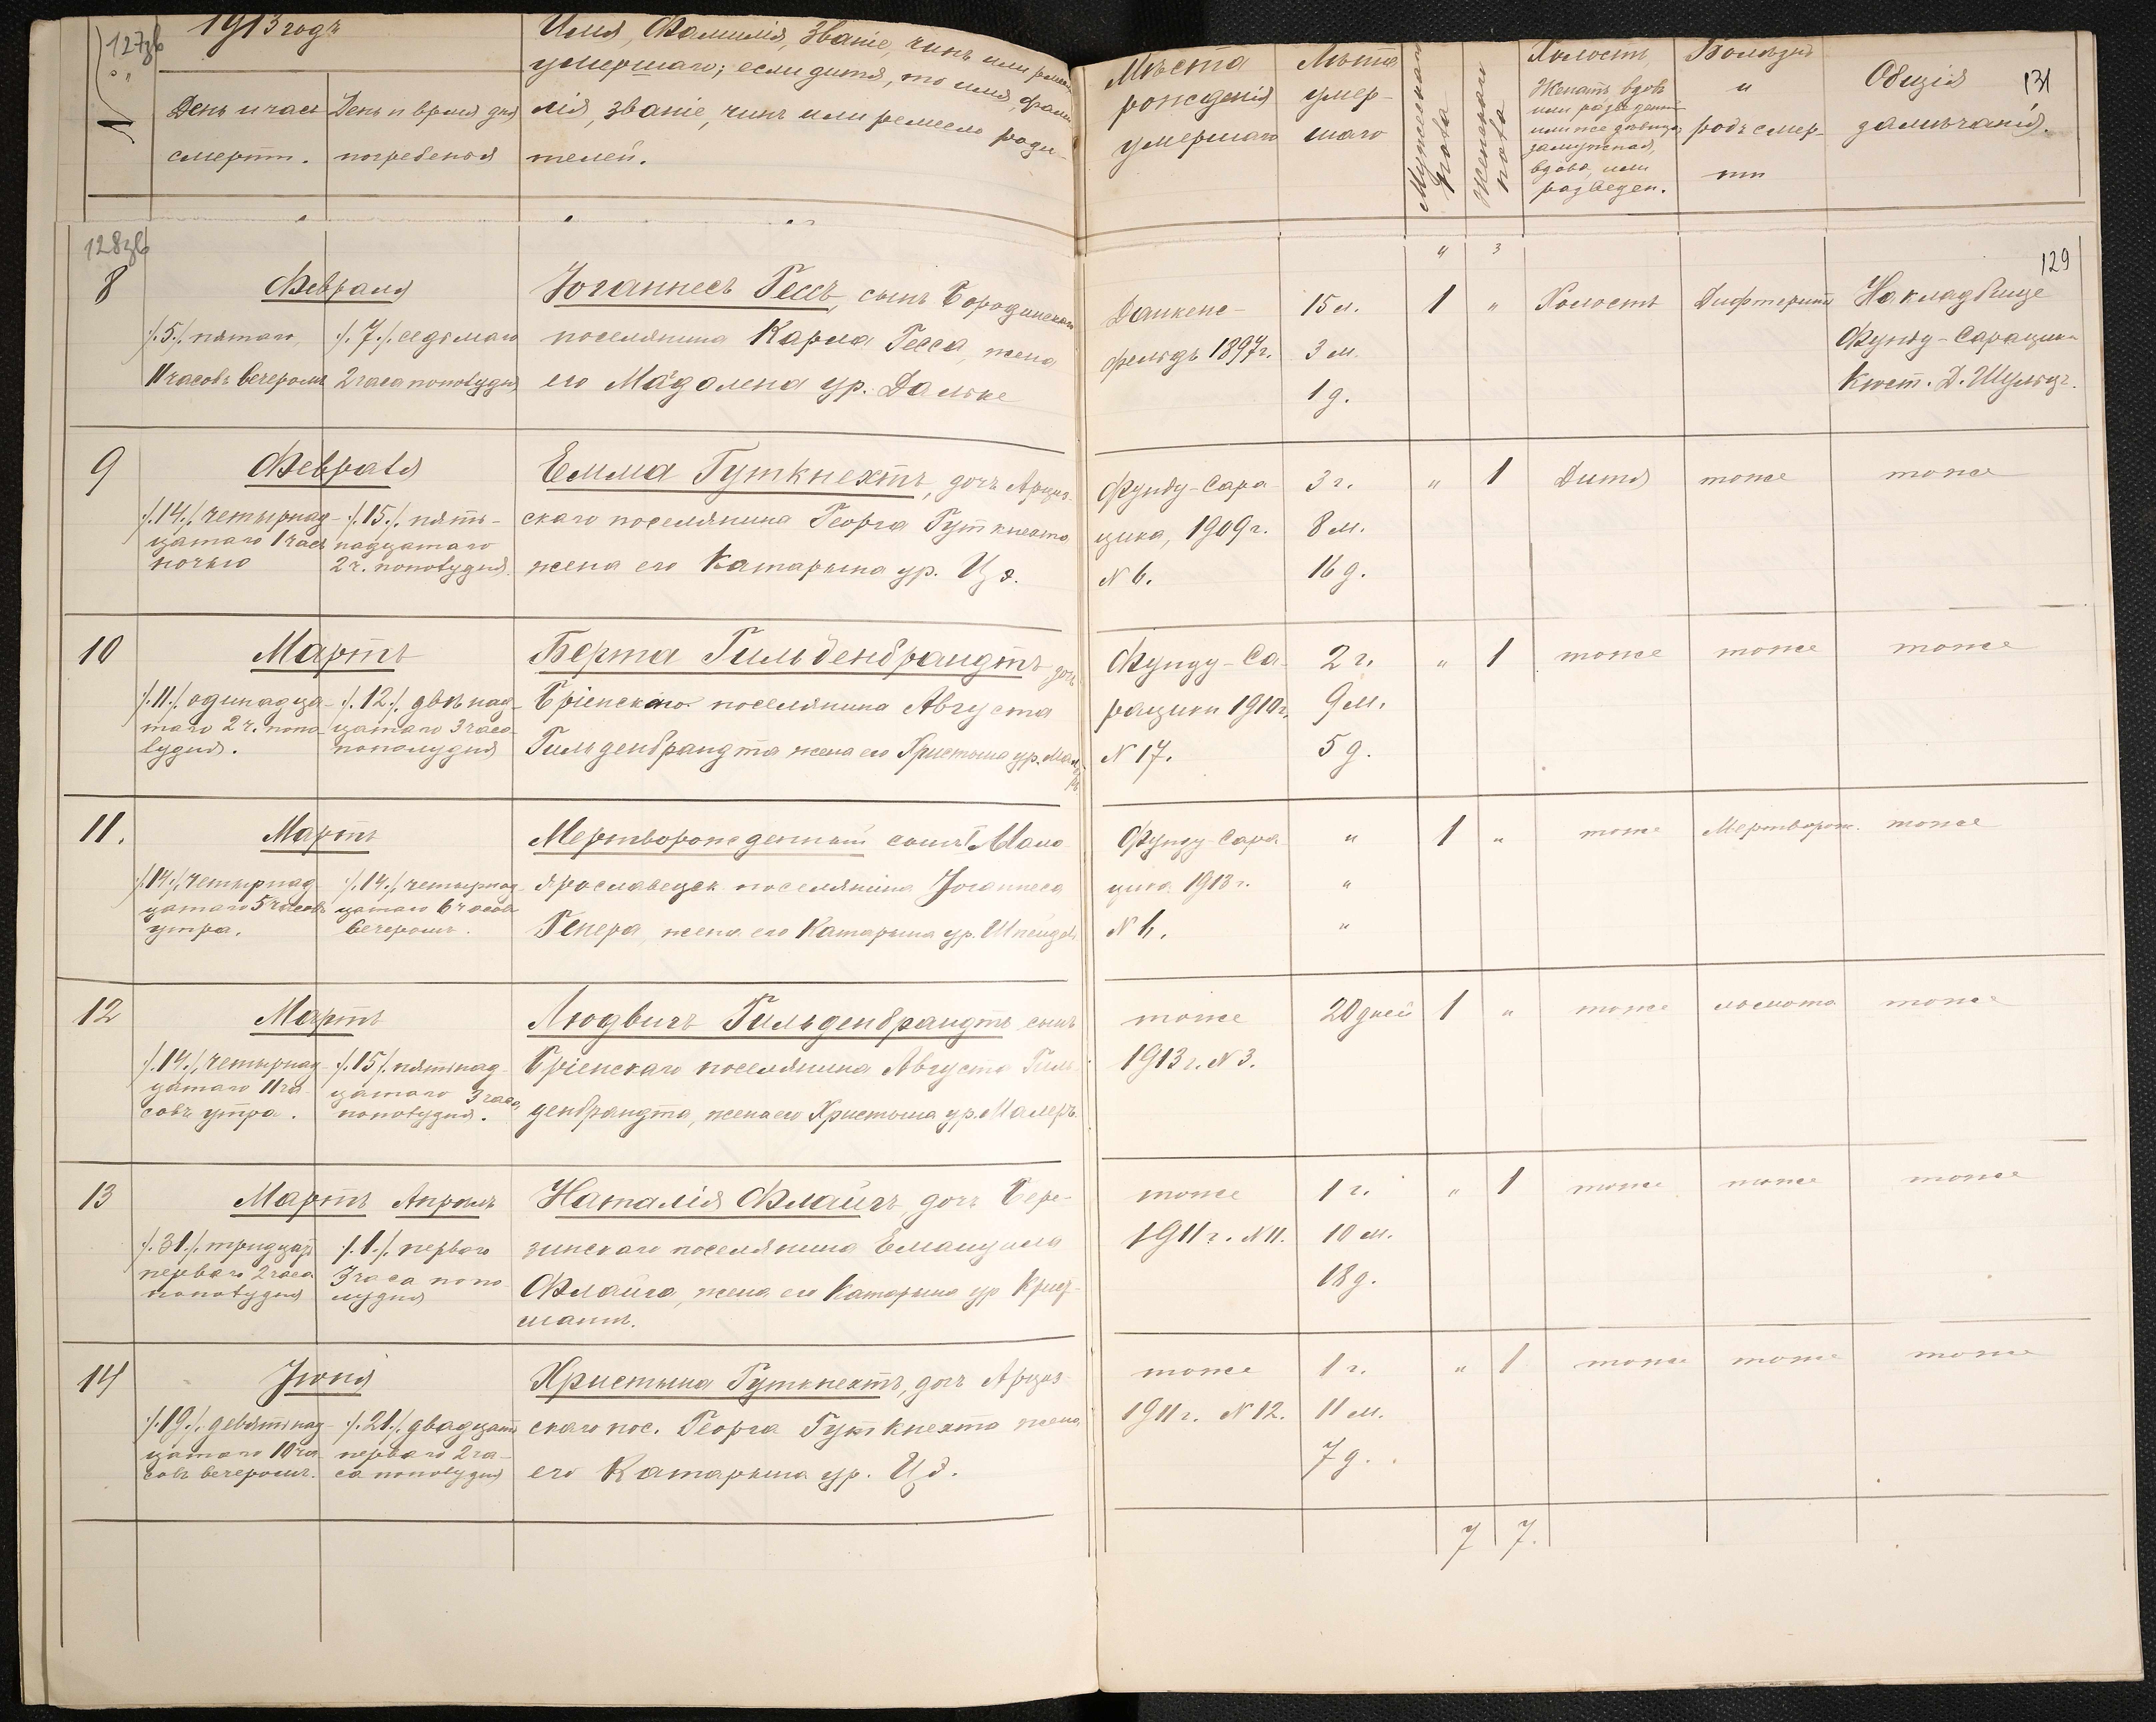 127зв
1913 годъ
День и часъ
смерти.
День и время дня
погребенія
Имя, Фамилія, Званіе, чинъ или ремесло
умершаго; если дитя, то имя, фами-
лія, званіе, чинъ или ремесло роди-
телей.
Мѣста
рожденія
умершаго
Лѣта
умер-
шаго
Мужескаго
пола
Женскаго
пола
Холостъ,
Женатъ, вдовъ
или разведенъ
или же дѣвица,
замужняя,
вдова, или
разведен.
Болѣзнь
и
родъ смер-
ти
Общія
замѣчанія.
131
128зв
8
Февраля
/.5./. пятаго,
11 часовъ вечеромъ
/.7./. седьмаго
2 часа пополудня
Іоганнесъ Гессъ, сынъ Бородинскаго
поселянина Карла Гесса, жена
его Магдалена ур. Дальке
Данкенс-
фельдъ 1897 г.
15 л.
3 м.
1 д.
" 3
1 "
Холостъ
Дифтеритъ
129
На кладбище
Фунду-Сарацик.
Кюст. Д. Шульцъ.
9
Февраля
/.14./. четырнад-
цатаго 1 часъ
ночью
/.15./. пять-
надцатаго
2 ч. пополудня.
Емма Гуткнехтъ, дочь Арциз-
скаго поселянина Георга Гуткнехта
жена его Катарына ур. Цз.
Фунду-Сара-
цика, 1909 г.
N 6.
3 г.
8 м.
16 д.
" 1
Дитя
тоже
тоже
10
Мартъ
/.11./. одинадца-
таго 2 ч. попо-
лудня.
/.12./. двѣнад-
цатаго 3 часа
пополудня
Берта Гильденбрандтъ, дочь
Бріенскаго поселянина Августа
Гильденбрандта жена его Христына ур. Малеръ
Фунду-Са-
рацики 1910 г.
N 17.
2 г.
9 м.
5 д.
" 1
тоже
тоже
тоже
11.
Мартъ
/.14./. четырнад-
цатаго 5 часовъ
утра.
/.14./. четырнад-
цатаго 6 часовъ
вечеромъ.
Мертворожденный сынъ Мало-
ярославецк. поселянина Іоганнеса
Генера, жена его Катарына ур. Шнейдеръ
Фунду-Сара-
цика 1913 г.
N 6.
"
"
"
1 "
тоже
Мертворож.
тоже
12
Мартъ
/.14./. четырнад-
цатаго 11 ча-
совъ утра.
/.15./. пятьнад-
цатаго 3 часа
пополудня.
Людвигъ Гильденбрандтъ сынъ
Бріенскаго поселянина Августа Гиль-
денбрандта, жена его Христына ур. Малеръ.
тоже
1913 г. N 3.
20 дней
1 "
тоже
ломота
тоже
13
Мартъ Апрѣль
/.31./. тридцать
перваго 2 часа
пополудня
/.1./. перваго
3 часа попо-
лудня
Наталія Флайгъ, дочь Бере-
зинскаго поселянина Емануила
Флайга, жена его Катарына ур Криг-
манъ.
тоже
1911 г. N 11.
1 г.
10 м.
18 д.
" 1
тоже
тоже
тоже
14
Іюня
/.19./. девятьнад-
цатаго 10 ча-
совъ вечеромъ.
/.21./. двадцать
перваго 2 ча-
са пополудня
Христына Гуткнехтъ, дочь Арциз-
скаго пос. Георга Гуткнехта жена
его Катарына ур. Цз.
тоже
1911 г. N 12.
1 г.
11 м.
7 д.
" 1
тоже
тоже
тоже
7 7.